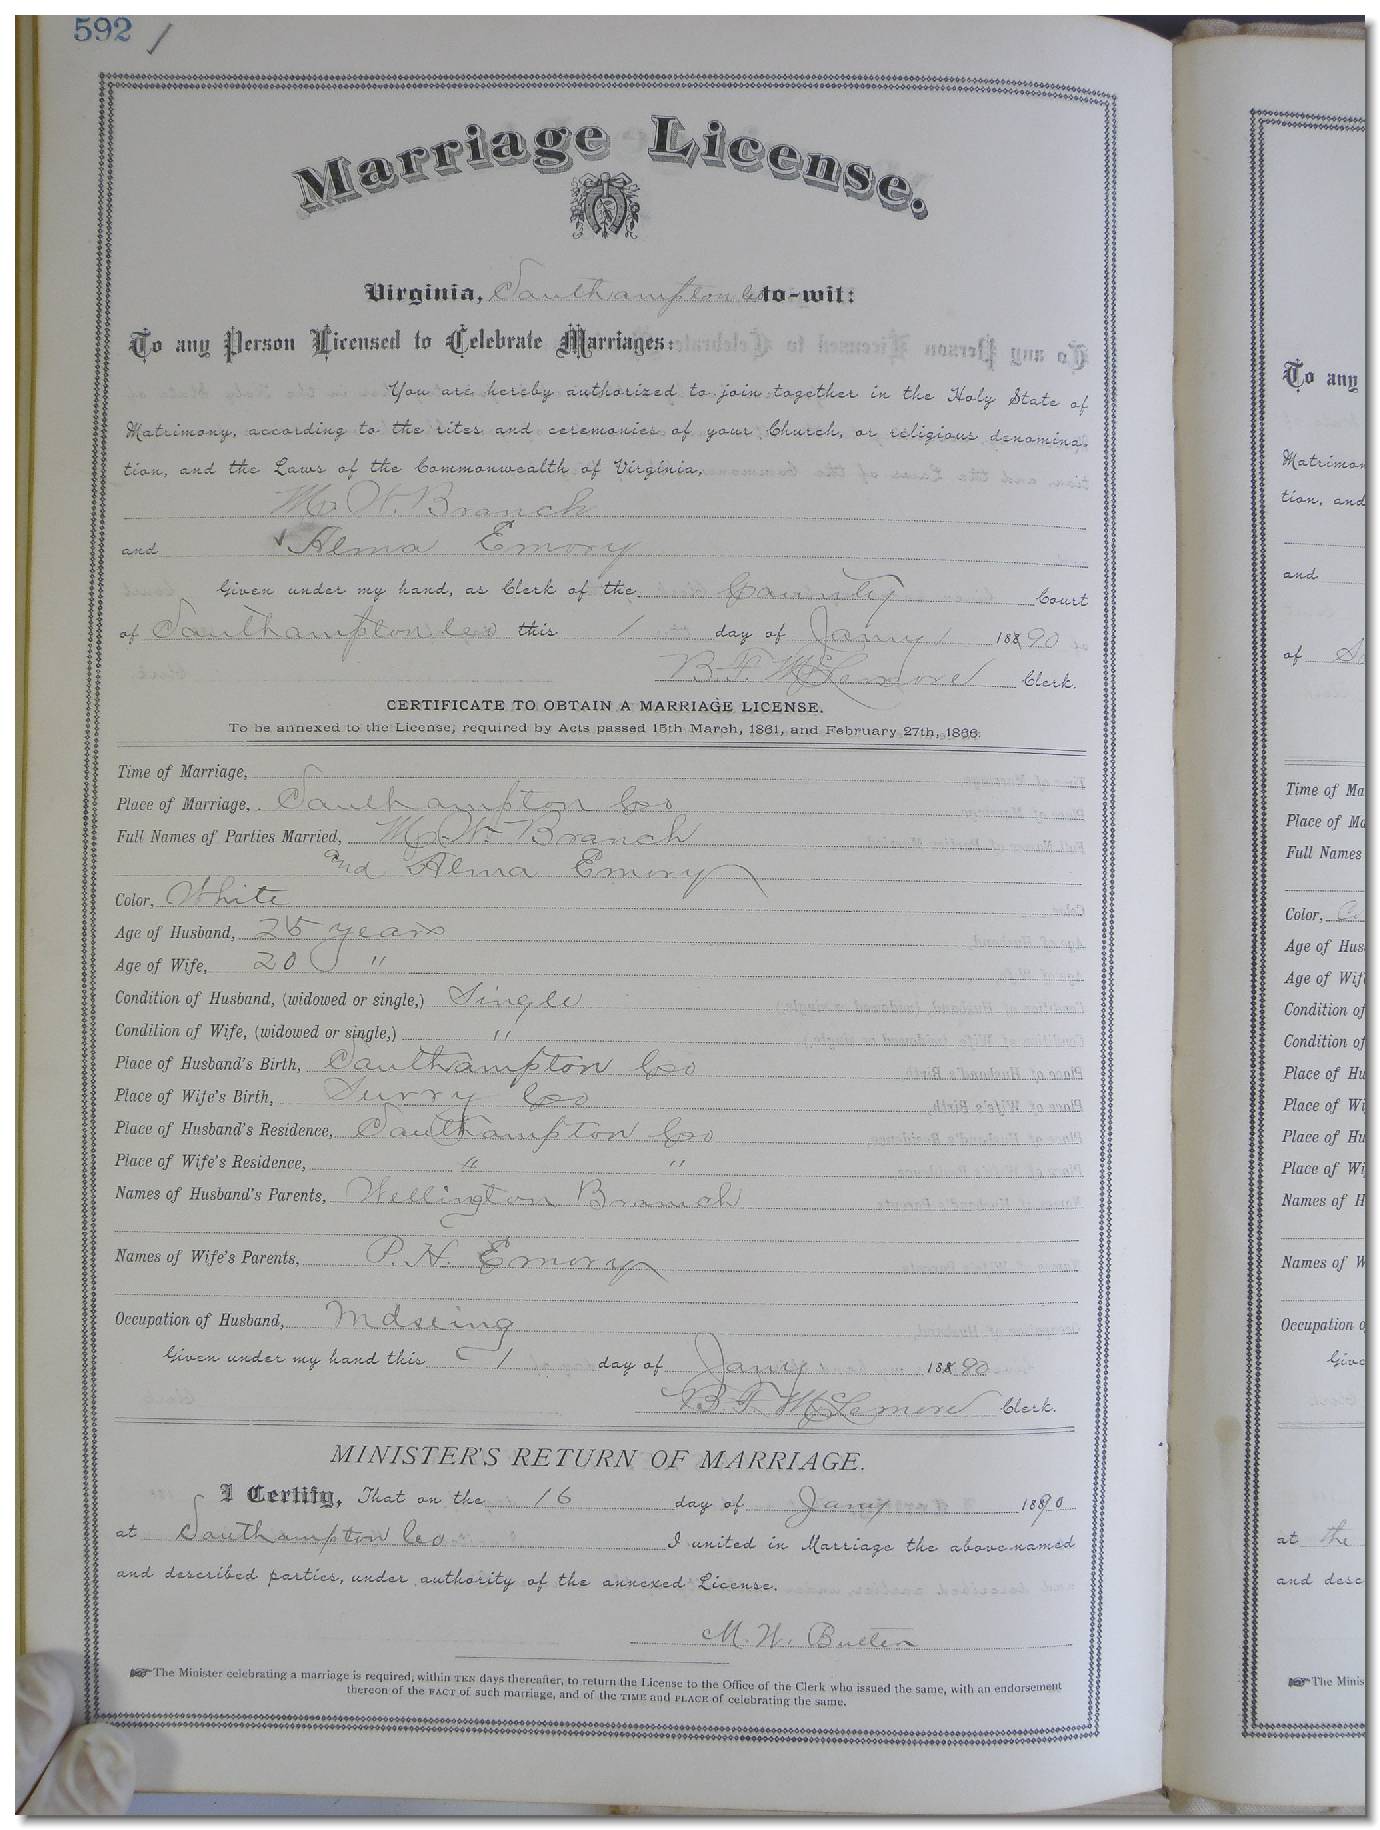 592 1
Marriage License.
Virginia, Southampton Co to-wit:
To any Person Licensed to Celebrate Marriages:
You are hereby authorized to join together in the Holy State of
Matrimony, according to the rites and ceremonies of your Church, or religious denomina-
tion, and the Laws of the Commonwealth of Virginia,
W. Branch
and Alma Emory
Given under my hand, as Clerk of the County Court
of Southampton Co this 1 day of Jany 1890
B. F. McLemore Clerk.
CERTIFICATE TO OBTAIN A MARRIAGE LICENSE.
To be annexed to the License, required by Acts passed 15th March, 1861, and February 27th, 1866.
Time of Marriage,
Place of Marriage, Southampton Co
Full Names of Parties Married, W. Branch
and Alma Emory
Color, White
Age of Husband, 25 years
Age of Wife, 20 "
Condition of Husband, (widowed or single,) Single
Condition of Wife, (widowed or single,) "
Place of Husband's Birth, Southampton Co
Place of Wife's Birth, Surry Co
Place of Husband's Residence, Southampton Co
Place of Wife's Residence, " "
Names of Husband's Parents, Wellington Branch
Names of Wife's Parents, P. H. Emory
Occupation of Husband, Mdseing
Given under my hand this 1 day of Jany 1890
B. F. McLemore Clerk.
MINISTER'S RETURN OF MARRIAGE.
I Certify, That on the 16 day of Jany 1890
at Southampton Co I united in Marriage the above-named
and described parties, under authority of the annexed License.
M. W. Butler
The Minister celebrating a marriage is required, within TEN days thereafter, to return the License to the Office of the Clerk who issued the same, with an endorsement
thereon of the FACT of such marriage, and of the TIME and PLACE of celebrating the same.
To any
Matrimon
tion, and
and
of
Time of Ma
Place of Ma
Full Names
Color,
Age of Hus
Age of Wif
Condition of
Condition of
Place of Hu
Place of Wi
Place of Hu
Place of Wi
Names of H
Names of W
Occupation o
Give
at the
and desc
The Minis